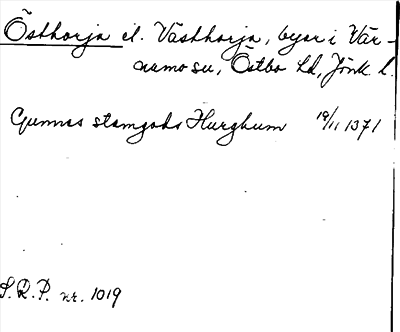 Östhorja el. Västhorja, byar i Vär-
namo sn, Östbo hd, Jönk. l.
Gunnas stamgods Hurghum 19/11 1371
S.R.P. nr. 1019